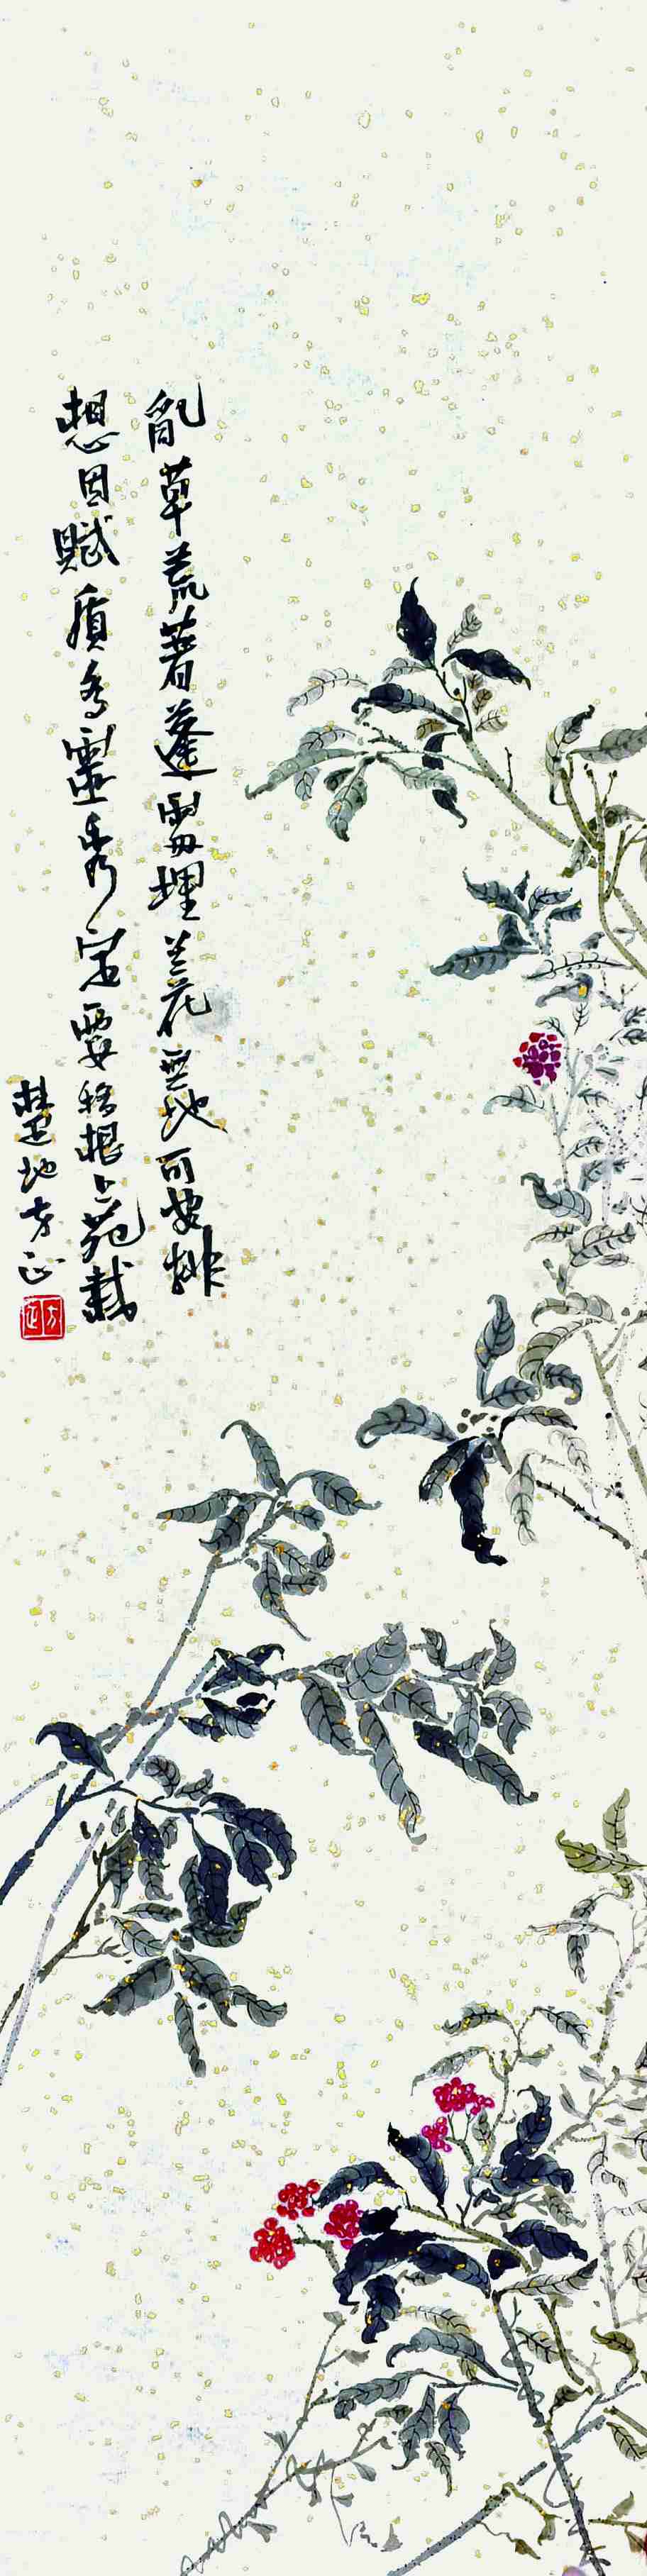 亂草荒著蓬雪埋兰花無地可安排
想因賦質多靈秀定要移根上苑栽
楚地方正
方正